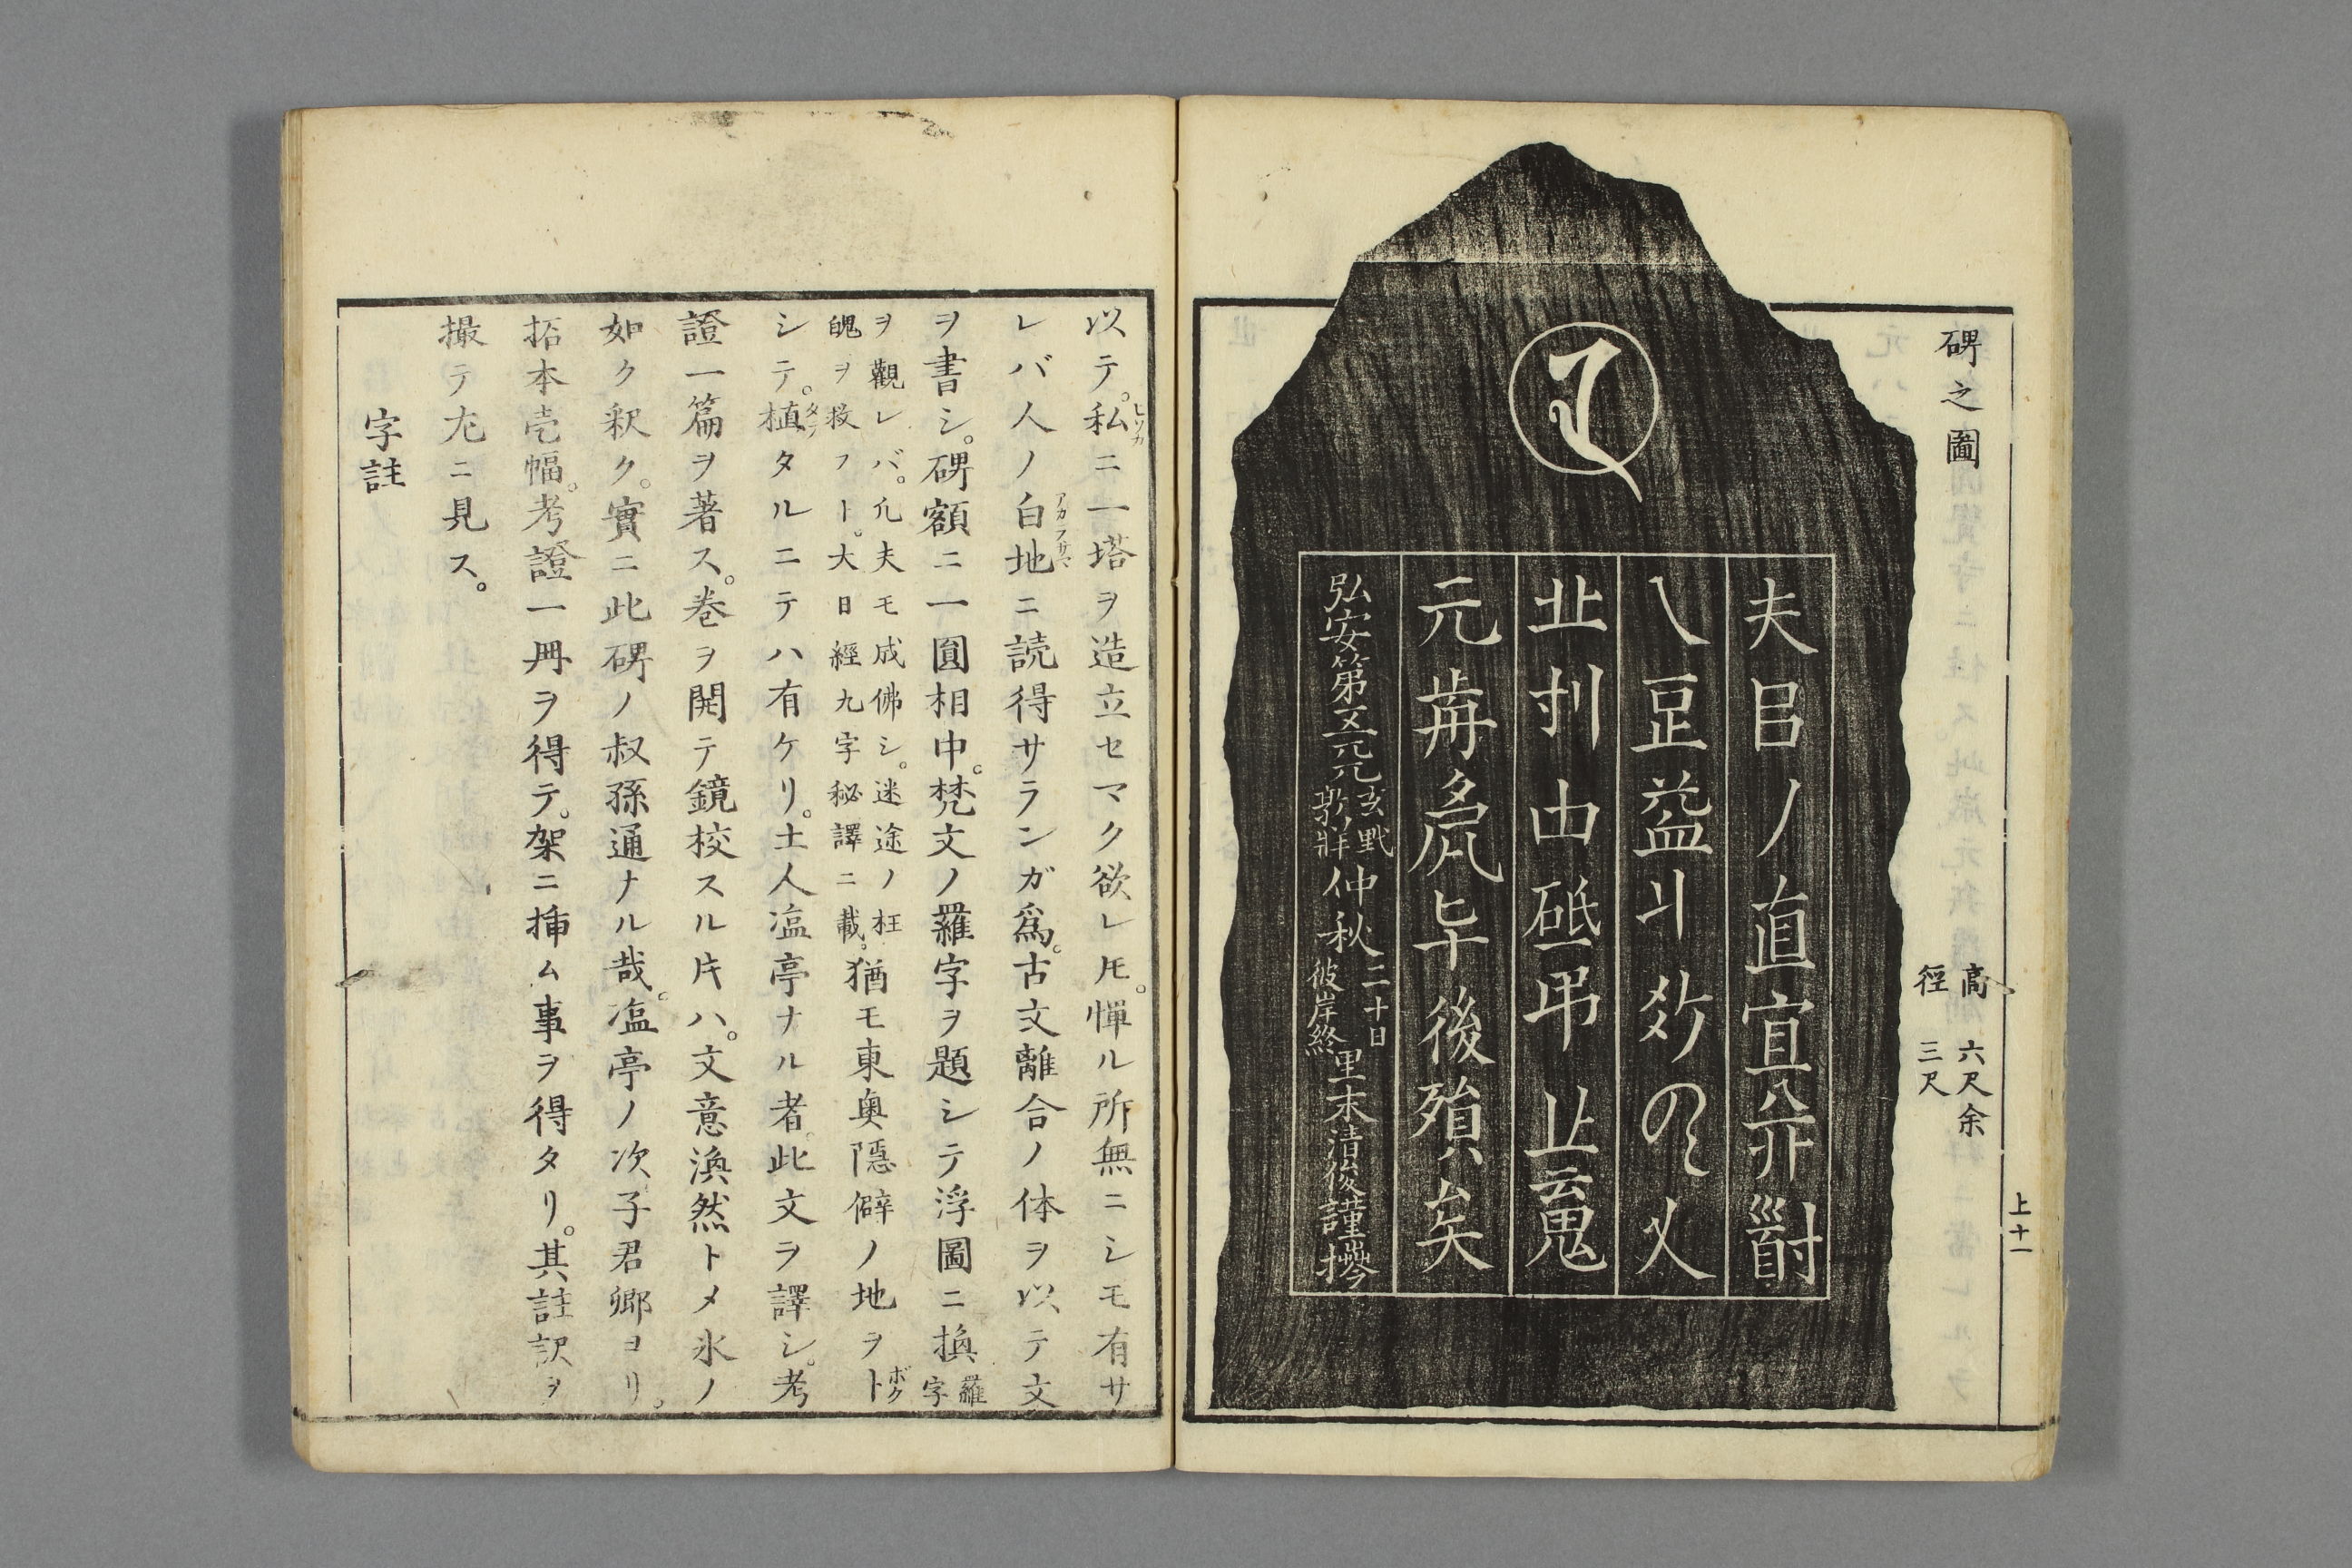 碑之圖
高 六尺余
徑 三尺
夫㠯ノ直宜
乀豆益丩
北刋由砥弔
元歬後㱵矣
弘安第五元
仲秋二十日彼岸終
里末清俊謹
上十一
以テ。私ニ一塔ヲ造立セマク欲レ𪜈。憚ル所無ニシモ有サ
ヒソカ
レバ人ノ白地ニ読得サランガ爲。古文離合ノ体ヲ以テ文
アカラサマ
ヲ書シ。碑額ニ一圓相中。梵文ノ羅字ヲ題シテ浮圖ニ換
羅字
ヲ觀レバ。凢夫モ成佛シ。迷途ノ枉
魄ヲ救フト。大日經九字秘譯ニ載。
猶モ東奥隱僻ノ地ヲト
ボク
シテ。植タルニテハ有ケリ。土人塩亭ナル者。此文ヲ譯シ。考
證一篇ヲ著ス。巻ヲ開テ鏡校スル片ハ。文意渙然トメ氷ノ
如ク釈ク。實ニ此碑ノ叔孫通ナル哉。塩亭ノ次子君卿ヨリ。
拓本壱幅。考證一冊ヲ得テ。架ニ挿ム事ヲ得タリ。其註訳ヲ
撮テ左ニ見ス。
字註